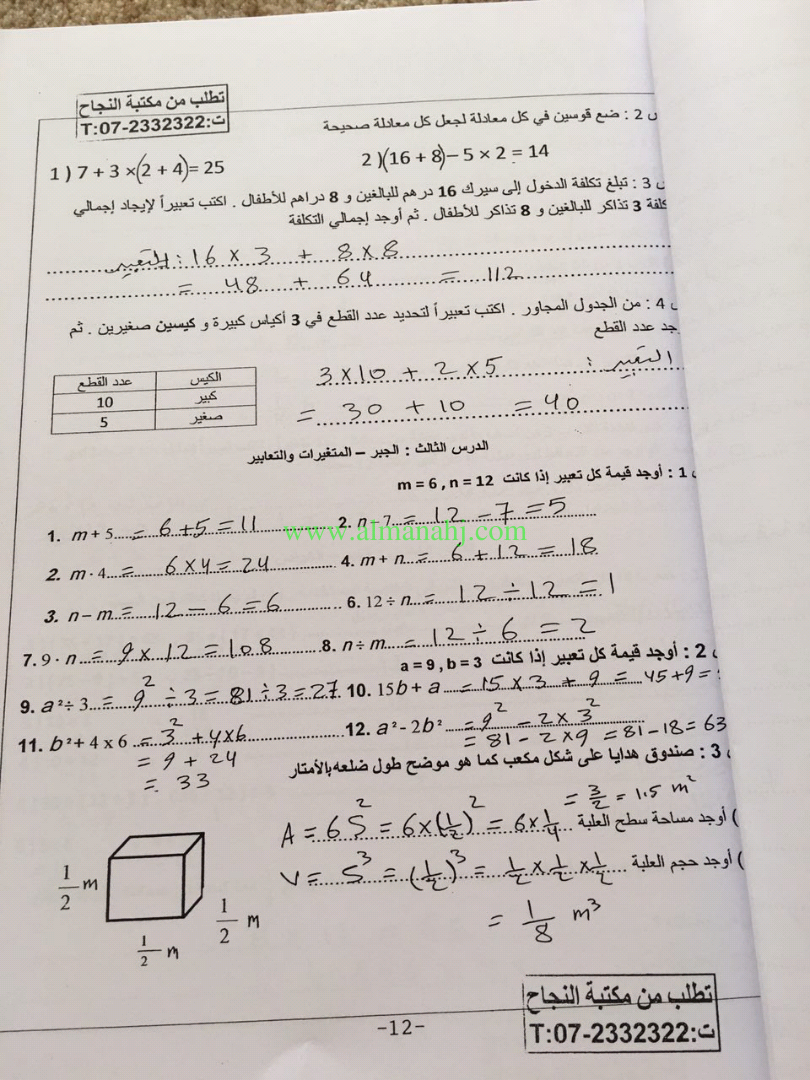 تطلب من مكتبة النجاح
ت:T:07-2332322
2 : ضع قوسين في كل معادلة لجعل كل معادلة صحيحة
1 ) 7 + 3 ×(2 + 4)= 25
2 )(16 + 8)– 5 × 2 = 14
3 : تبلغ تكلفة الدخول إلى سيرك 16 درهم للبالغين و 8 دراهم للأطفال . اكتب تعبيراً لإيجاد إجمالي
كلفة 3 تذاكر للبالغين و 8 تذاكر للأطفال . ثم أوجد إجمالي التكلفة
التعبير : 16 × 3 + 8 × 8
= 48 + 64 = 112
4 : من الجدول المجاور . اكتب تعبيراً لتحديد عدد القطع في 3 أكياس كبيرة و كيسين صغيرين . ثم
جد عدد القطع
التعبير :
3 × 10 + 2 × 5
= 30 + 10 = 40
الكيس عدد القطع
كبير 10
صغير 5
الدرس الثالث : الجبر – المتغيرات والتعابير
1 : أوجد قيمة كل تعبير إذا كانت m = 6 , n = 12
1. m + 5 = 6 + 5 = 11
2. n - 7 = 12 - 7 = 5
www.almanahj.com
2. m · 4 = 6 × 4 = 24
4. m + n = 6 + 12 = 18
3. n – m = 12 - 6 = 6
6. 12 ÷ n = 12 ÷ 12 = 1
7. 9 · n = 9 × 12 = 108
8. n ÷ m = 12 ÷ 6 = 2
2 : أوجد قيمة كل تعبير إذا كانت a = 9 , b = 3
9. a² ÷ 3 = 9² ÷ 3 = 81 ÷ 3 = 27
10. 15b + a = 15 × 3 + 9 = 45 + 9 =
11. b² + 4 x 6 = 3² + 4×6
= 9 + 24
= 33
12. a² - 2b² = 9² - 2 × 3²
= 81 - 2 × 9 = 81 - 18 = 63
3 : صندوق هدايا على شكل مكعب كما هو موضح طول ضلعه بالأمتار
= 3/2 = 1.5 m²
) أوجد مساحة سطح العلبة A = 6S² = 6×(1/2)² = 6×1/4
) أوجد حجم العلبة V = S³ = (1/2)³ = 1/2 × 1/2 × 1/2
= 1/8 m³
1/2 m
1/2 m
1/2 m
تطلب من مكتبة النجاح
ت:T:07-2332322
-12-